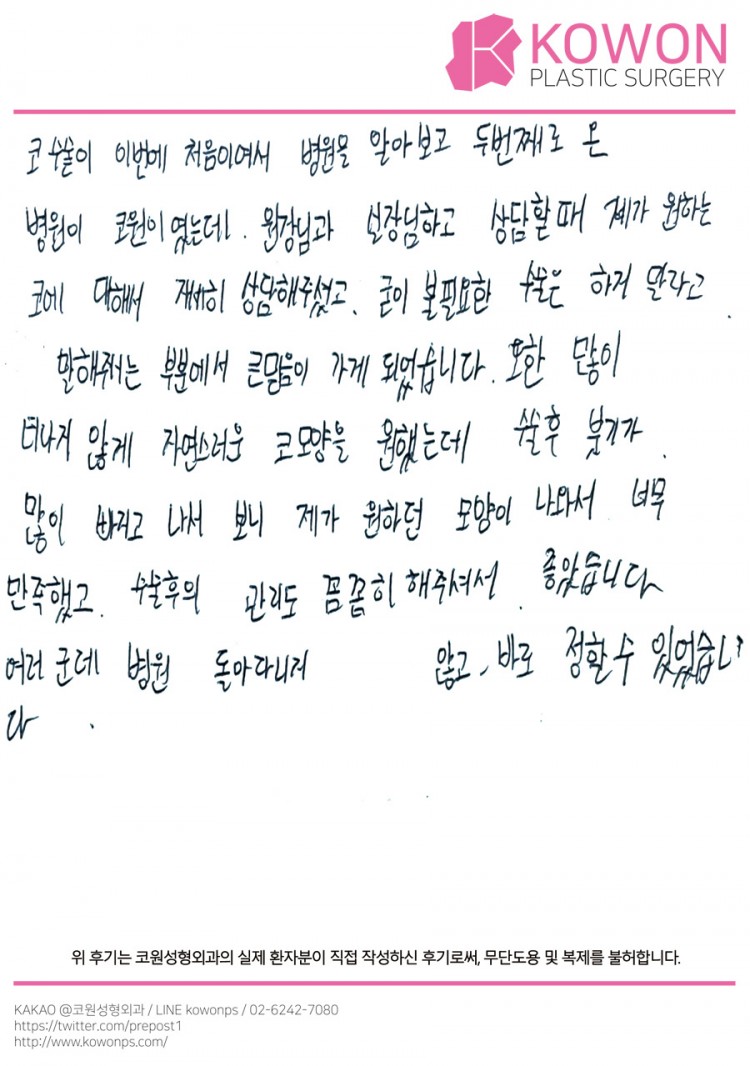 KOWON
PLASTIC SURGERY
코 수술이 이번에 처음이여서 병원을 알아보고 두번째로 온
병원이 코원이였는데. 원장님과 실장님하고 상담할때 제가 원하는
코에 대해서 자세히 상담해주셨고. 굳이 불필요한 수술은 하지 말라고
말해주시는 부분에서 큰믿음이 가게 되었습니다. 또한 많이
티나지 않게 자연스러운 코모양을 원했는데 수술후 붓기가
많이 빠지고 나서 보니 제가 원하던 모양이 나와서 너무
만족했고. 수술후의 관리도 꼼꼼히 해주셔서 좋았습니다
여러 군데 병원 돌아다니지 않고, 바로 정할수 있었습니
다.
위 후기는 코원성형외과의 실제 환자분이 직접 작성하신 후기로써, 무단도용 및 복제를 불허합니다.
KAKAO @코원성형외과 / LINE kowonps / 02-6242-7080
https://twitter.com/prepost1
http://www.kowonps.com/